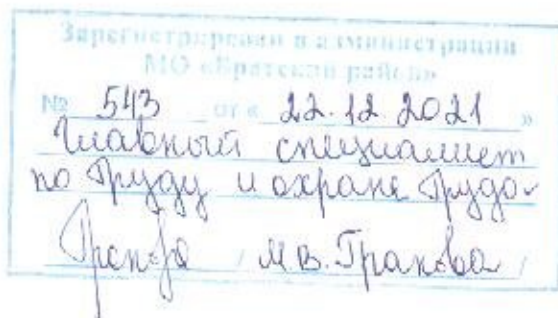 Зарегистрирован в администрации
МО «Братский район»
№ 543 от « 22.12.2021 »
Главный специалист
по труду и охране труда
/ М.В. /